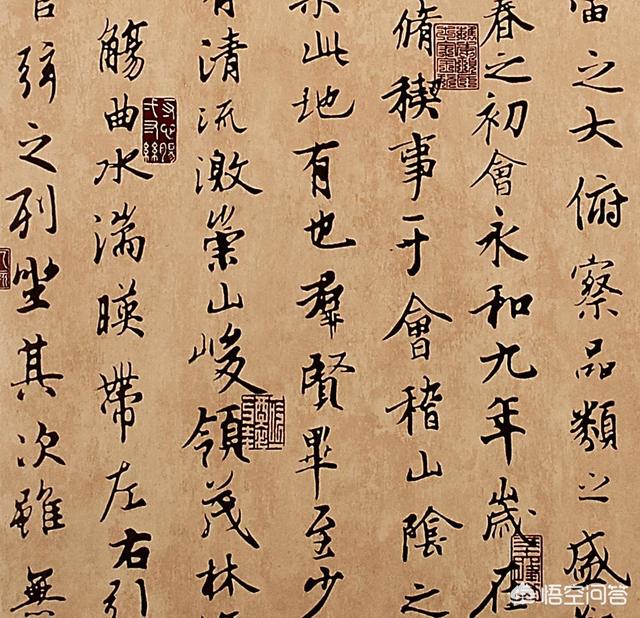 之大俯察品類之盛
春之初會永和九年歲在
脩稧事于會稽山陰之
此地有也羣賢畢至少
有清流激崇山峻領茂林
觴曲水湍暎帶左右引
弦之列坐其次雖無
悟空问答